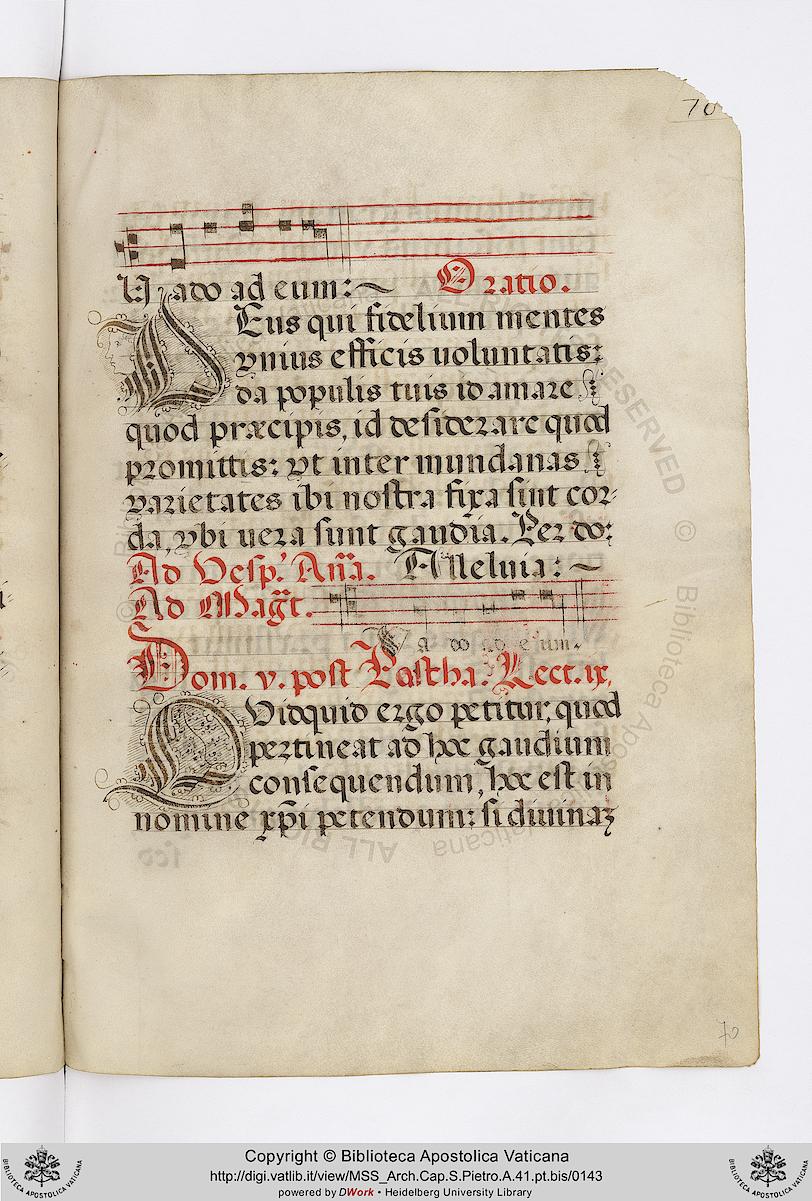 70
Vado ad eum: Oratio.
Deus qui fidelium mentes
vnius efficis uoluntatis:
da populis tuis id amare
quod præcipis, id desiderare quod
promittis: vt inter mundanas
varietates ibi nostra fixa sint cor-
da, vbi uera sunt gaudia. Per do:
Ad Vesp. Aña. Alleluia:
Ad Magt.
Vado ad eum.
Dom. v. post Pascha. Lect. ix.
Qvidquid ergo petitur, quod
pertineat ad hoc gaudium
consequendum, hoc est in
nomine xp̃i petendum: si diuinaꝫ
70
Copyright © Biblioteca Apostolica Vaticana
http://digi.vatlib.it/view/MSS_Arch.Cap.S.Pietro.A.41.pt.bis/0143
powered by DWork • Heidelberg University Library